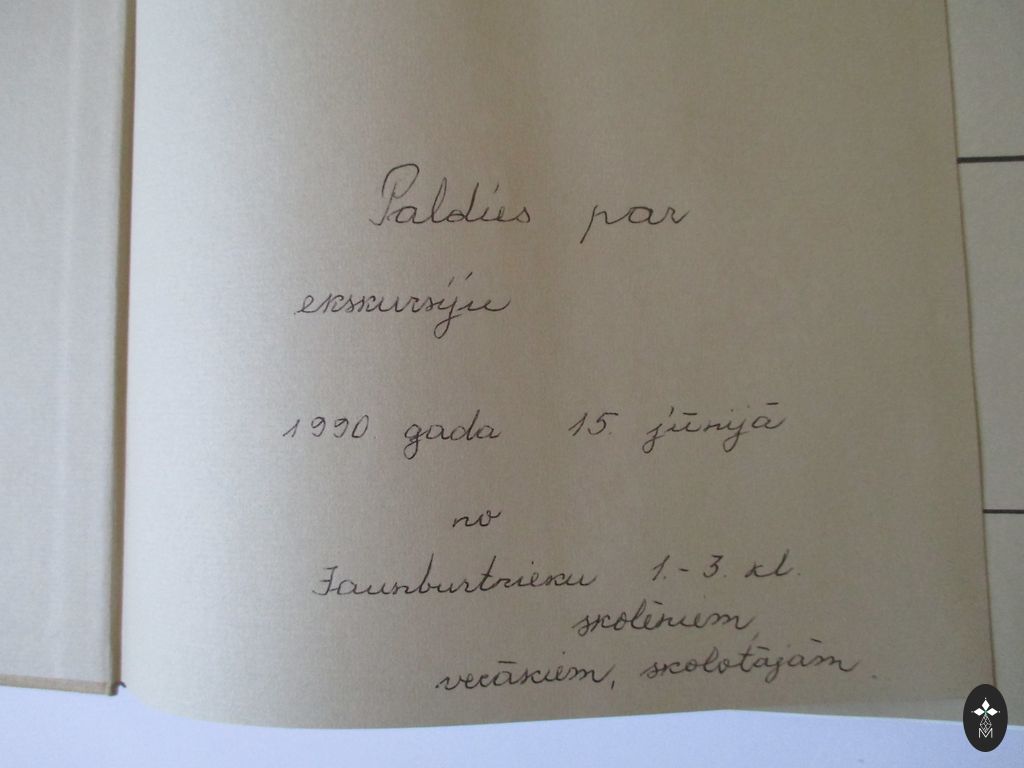 Paldies par
ekskursiju
1990. gada 15. jūnijā
no
Jaunburtnieku 1.-3. kl.
skolēniem
vecākiem, skolotājām.